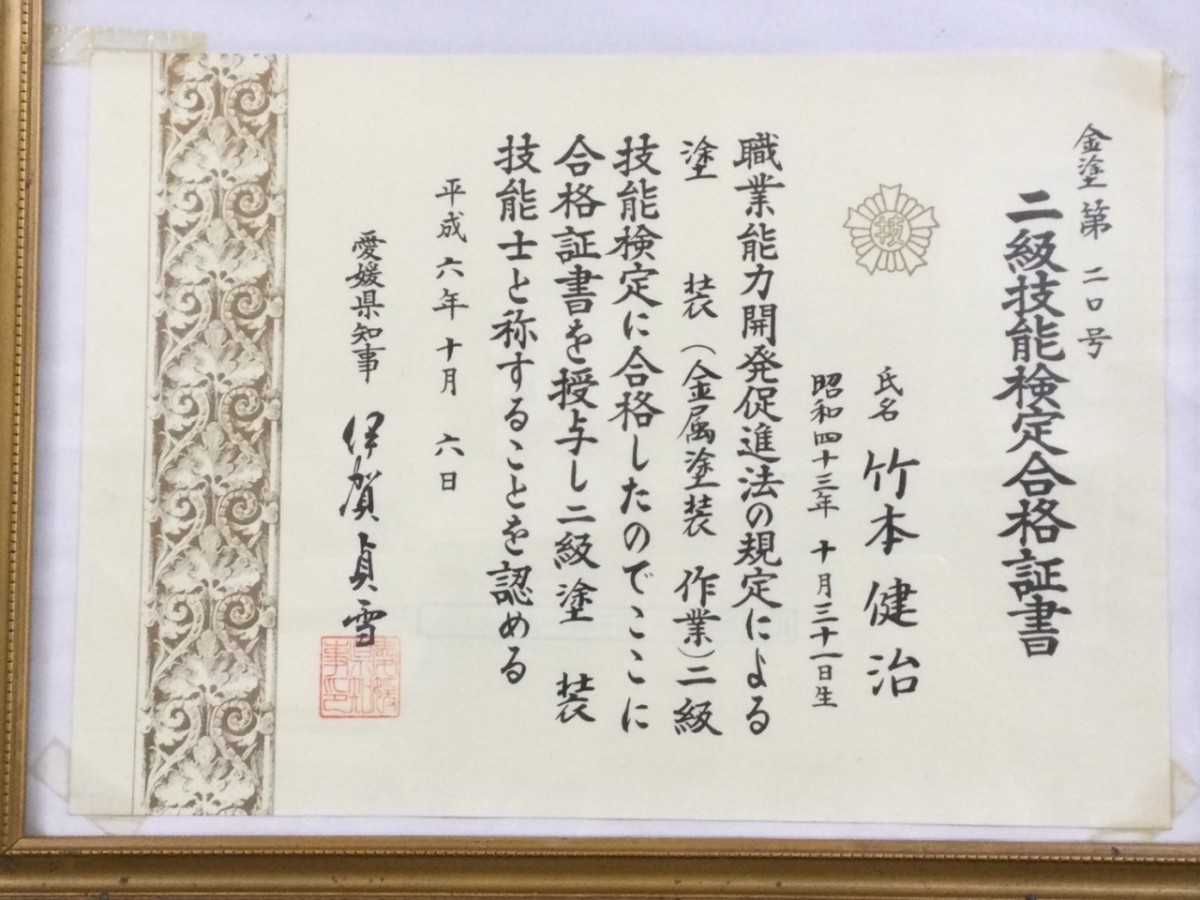 金塗第二〇号
二級技能検定合格証書
技
氏名 竹本健治
昭和四十三年十月三十一日生
職業能力開発促進法の規定による
塗 装(金属塗装 作業)二級
技能検定に合格したのでここに
合格証書を授与し二級塗 装
技能士と称することを認める
平成六年十月六日
愛媛県知事 伊賀貞雪
愛媛県知事印